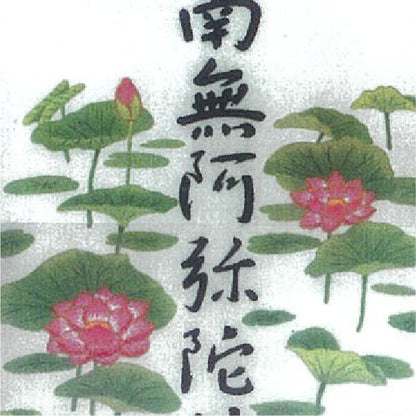 南無阿弥陀